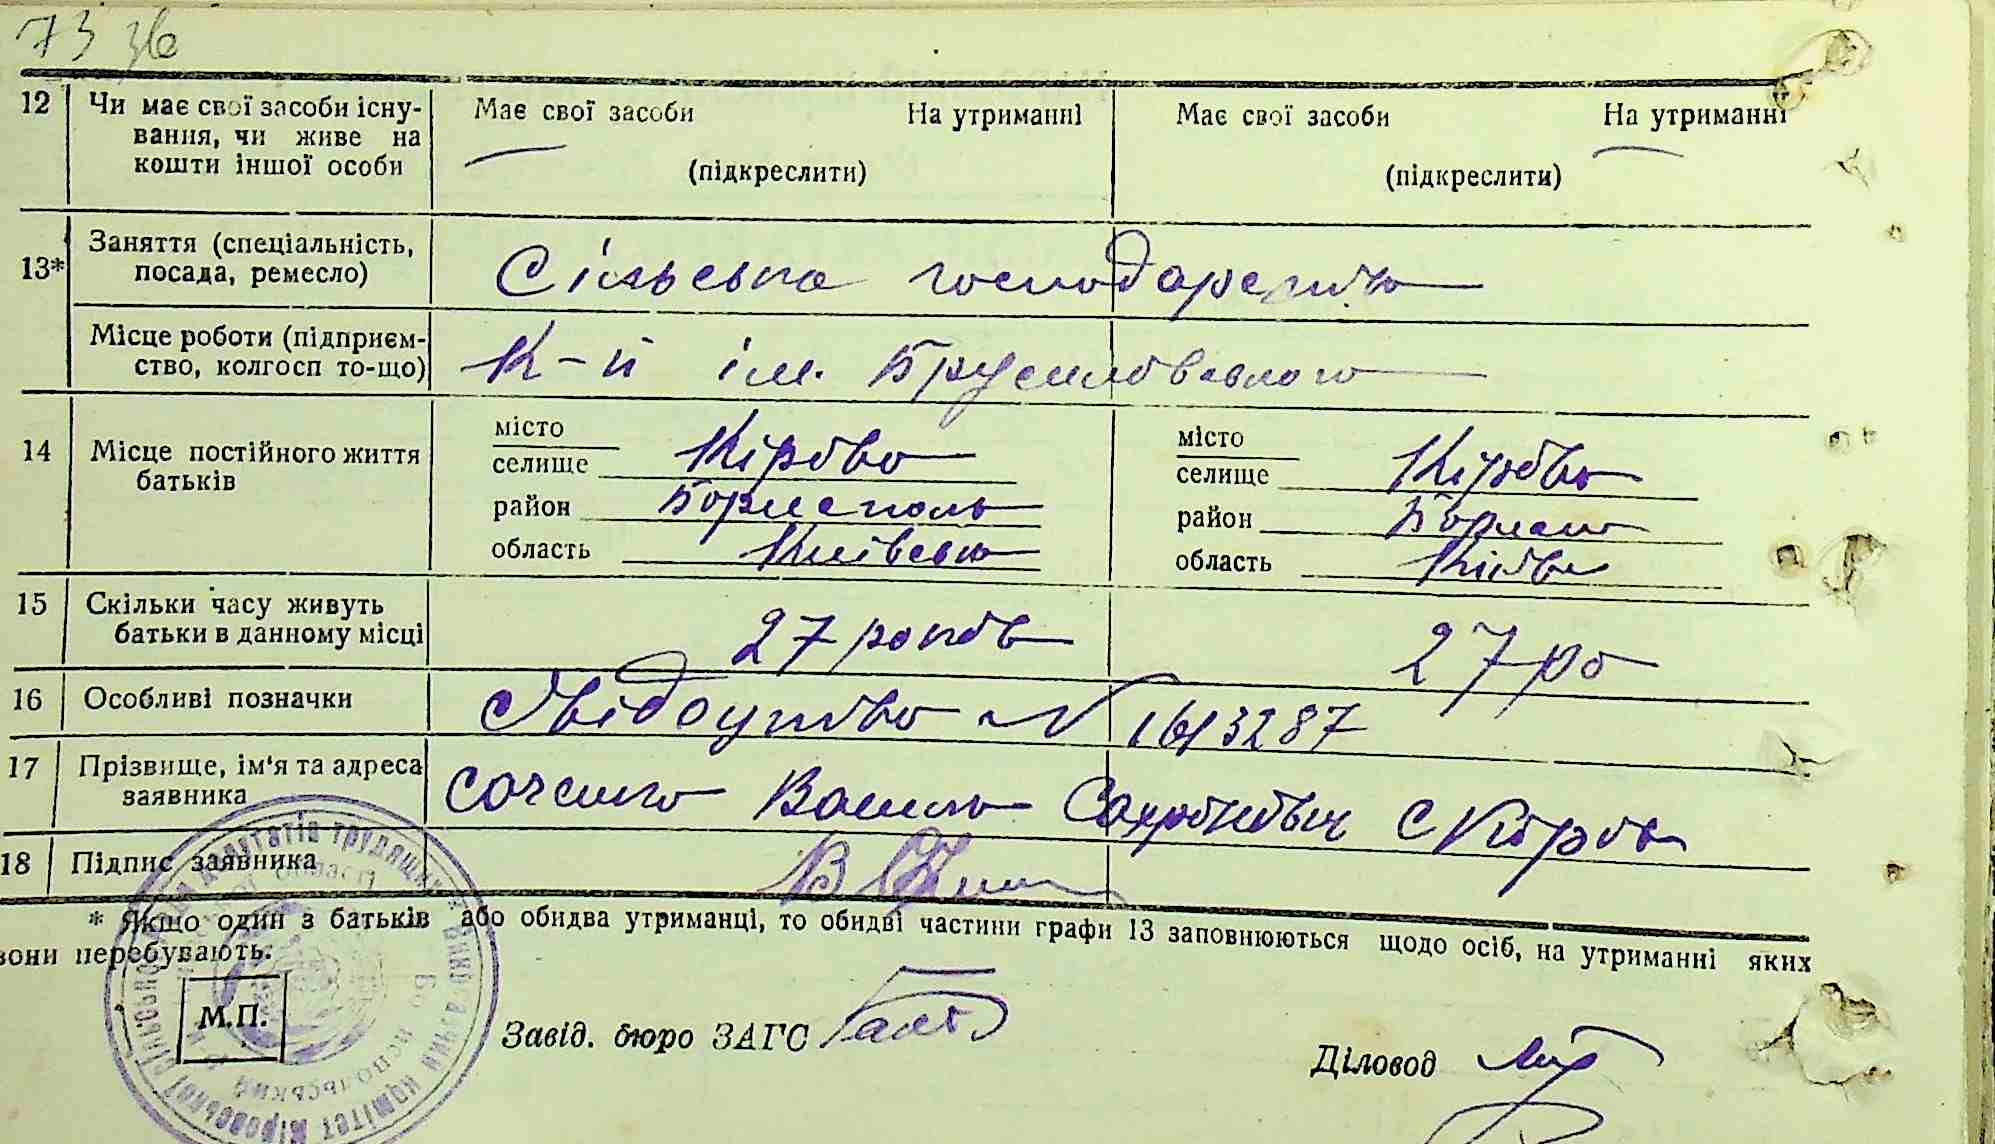 73 зв
12 Чи має свої засоби існу- Має свої засоби На утриманні Має свої засоби На утриманні
вання, чи живе на
кошти іншої особи (підкреслити) (підкреслити)
13* Заняття (спеціальність,
посада, ремесло) Сільська господарство
Місце роботи (підприєм-
ство, колгосп то-що) К-п ім.
14 Місце постійного життя
батьків
місто місто
селище Кірово селище Кірово
район Бориспіль район Борис
область Київська область Київ
15 Скільки часу живуть
батьки в данному місці 27 років 27 ро
16 Особливі позначки Свідоцтво N 1613287
17 Прізвище, ім'я та адреса
заявника Василь с Кірово
18 Підпис заявника В
* Якщо один з батьків або обидва утриманці, то обидві частини графи 13 заповнюються щодо осіб, на утриманні яких
вони перебувають.
М.П.
Завід. бюро ЗАГС
Діловод